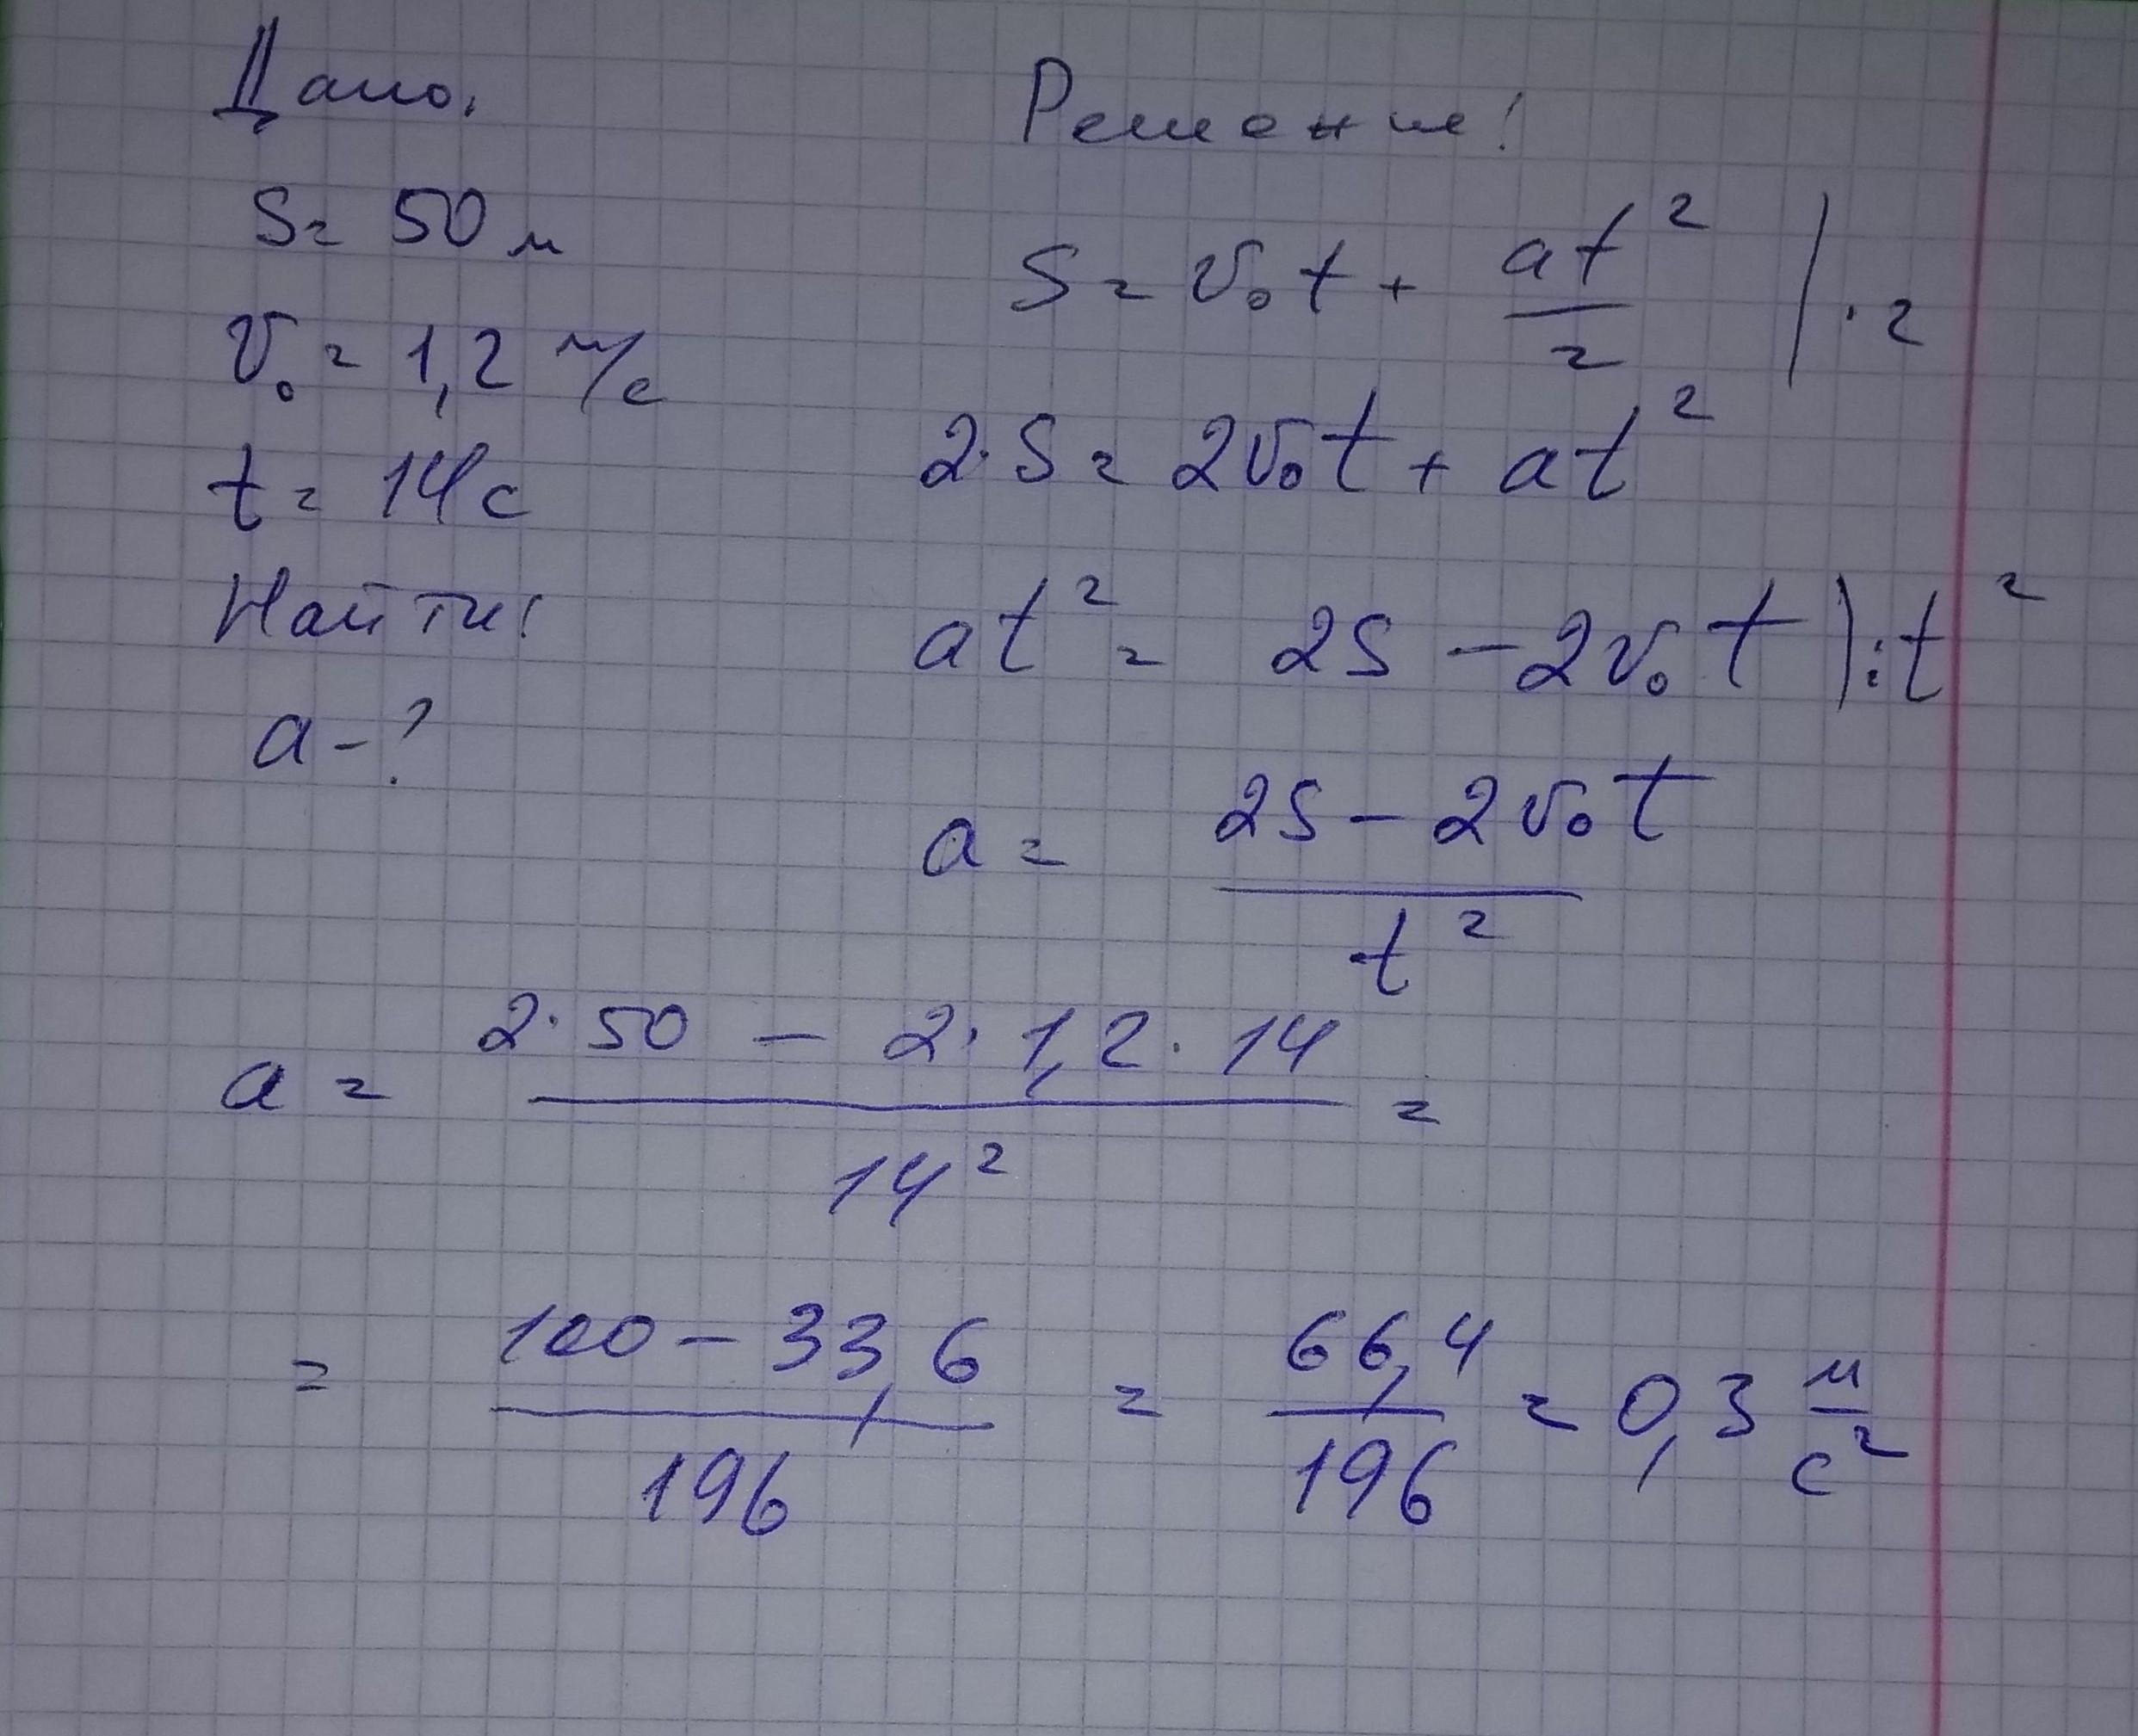 Дано:
S = 50 м
v₀ = 1,2 м/с
t = 14 с
Найти:
a - ?
Решение:
S = v₀t + at²/2 | · 2
2·S = 2v₀t + at²
at² = 2S - 2v₀t | : t²
a = (2S - 2v₀t)/t²
a = (2·50 - 2·1,2·14)/14² =
= (100 - 33,6)/196 = 66,4/196 = 0,3 м/с²